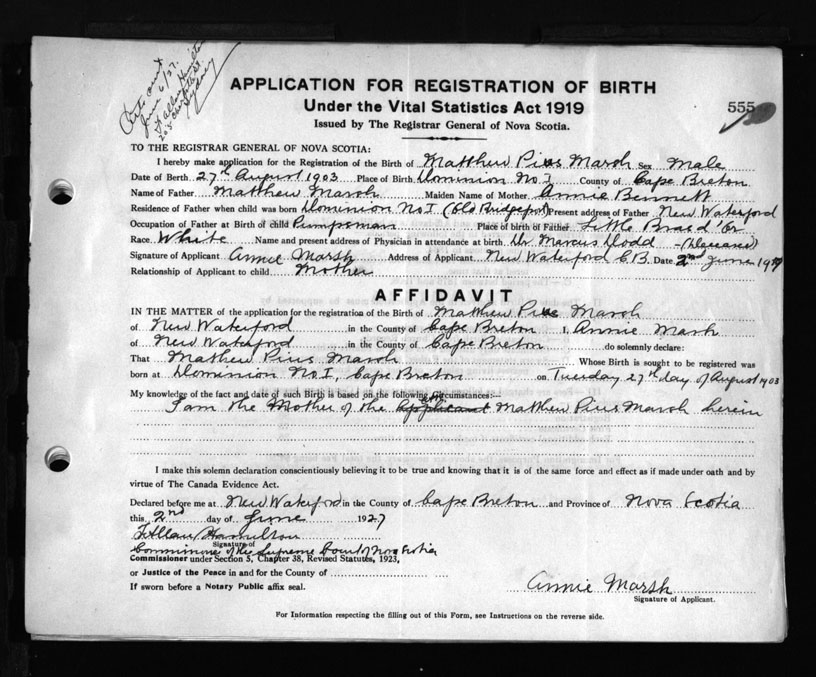 Cert. out
June 6/27.
F Allan Hamilton
205 Charlotte St
Sydney
APPLICATION FOR REGISTRATION OF BIRTH
Under the Vital Statistics Act 1919
555
Issued by The Registrar General of Nova Scotia.
TO THE REGISTRAR GENERAL OF NOVA SCOTIA:
I hereby make application for the Registration of the Birth of Matthew Pius Marsh Sex Male
Date of Birth 27th August 1903 Place of Birth Dominion No. 1 County of Cape Breton
Name of Father Matthew Marsh Maiden Name of Mother Annie Bennett
Residence of Father when child was born Dominion No 1 (Old Bridgeport) Present address of Father New Waterford
Occupation of Father at Birth of child Pumpsman Place of birth of Father Little Bras d'Or
Race White Name and present address of Physician in attendance at birth Dr. Marcus Dodd - (Deceased)
Signature of Applicant Annie Marsh Address of Applicant New Waterford C.B. Date 2nd June 1927
Relationship of Applicant to child Mother
AFFIDAVIT
IN THE MATTER of the application for the registration of the Birth of Matthew Pius Marsh
of New Waterford in the County of Cape Breton I, Annie Marsh
of New Waterford in the County of Cape Breton do solemnly declare:
That Mathew Pius Marsh Whose Birth is sought to be registered was
born at Dominion No. 1, Cape Breton on Tuesday 27th day of August 1903
My knowledge of the fact and date of such Birth is based on the following circumstances:—
I am the Mother of the applicant Matthew Pius Marsh herein
I make this solemn declaration conscientiously believing it to be true and knowing that it is of the same force and effect as if made under oath and by
virtue of The Canada Evidence Act.
Declared before me at New Waterford in the County of Cape Breton and Province of Nova Scotia
this 2nd day of June 1927
F Allan Hamilton
Signature of
Commissioner of the Supreme Court of Nova Scotia
Commissioner under Section 5, Chapter 38, Revised Statutes, 1923,
or Justice of the Peace in and for the County of
If sworn before a Notary Public affix seal.
Annie Marsh
Signature of Applicant.
For Information respecting the filling out of this Form, see Instructions on the reverse side.